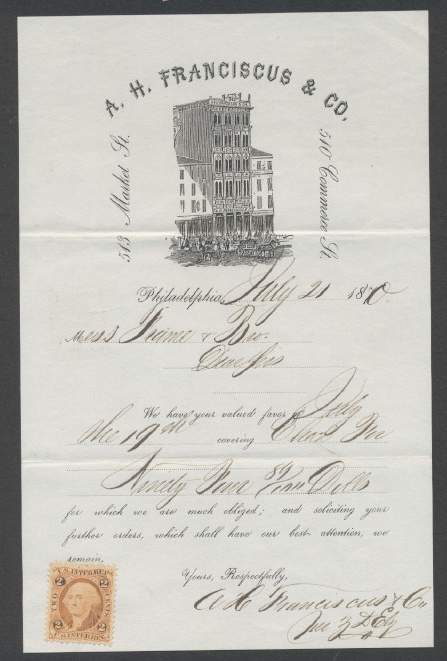 A. H. FRANCISCUS & CO.
513 Market St.
510 Commerce St.
Philadelphia, July 21 1870.
Mess Frame & Bro.
Dear Sirs
We have your valued favor of July
the 19th covering
Ninety Four 89/100 Dolls
for which we are much obliged; and soliciting your
further orders, which shall have our best attention, we
remain,
Yours, Respectfully,
A H Franciscus & Co
U.S. INTER. REV.
2 2
TWO CENTS
2 2
U.S. INTER. REV.